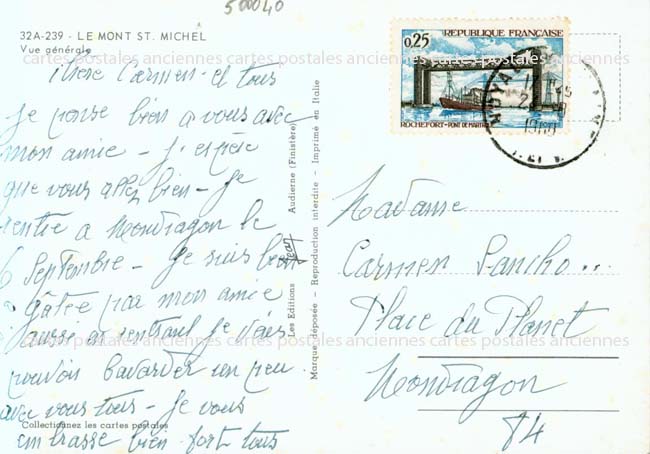 500040
32A-239 - LE MONT ST. MICHEL
Vue générale
Chère Carmen - et tous
Je pense bien a vous avec
mon amie - J'espère
que vous allez bien - Je
rentre a Mondragon le
6 Septembre - Je suis bien
gâtée par mon amie
aussi en rentrant je vais
pouvoir bavarder un peu
avec vous tous - Je vous
embrasse bien fort tous
Collectionnez les cartes postales
Les Editions Jean Audierne (Finistère)
Marque déposée - Reproduction interdite - Imprimé en Italie
REPUBLIQUE FRANÇAISE
0,25
ROCHEFORT - PONT DE MARTROU
ROYAN
Madame
Carmen Sancho ...
Place du Planet
Mondragon
84
cartes postales anciennes cartes postales anciennes cartes postales anciennes
cartes postales anciennes cartes postales anciennes cartes postales anciennes